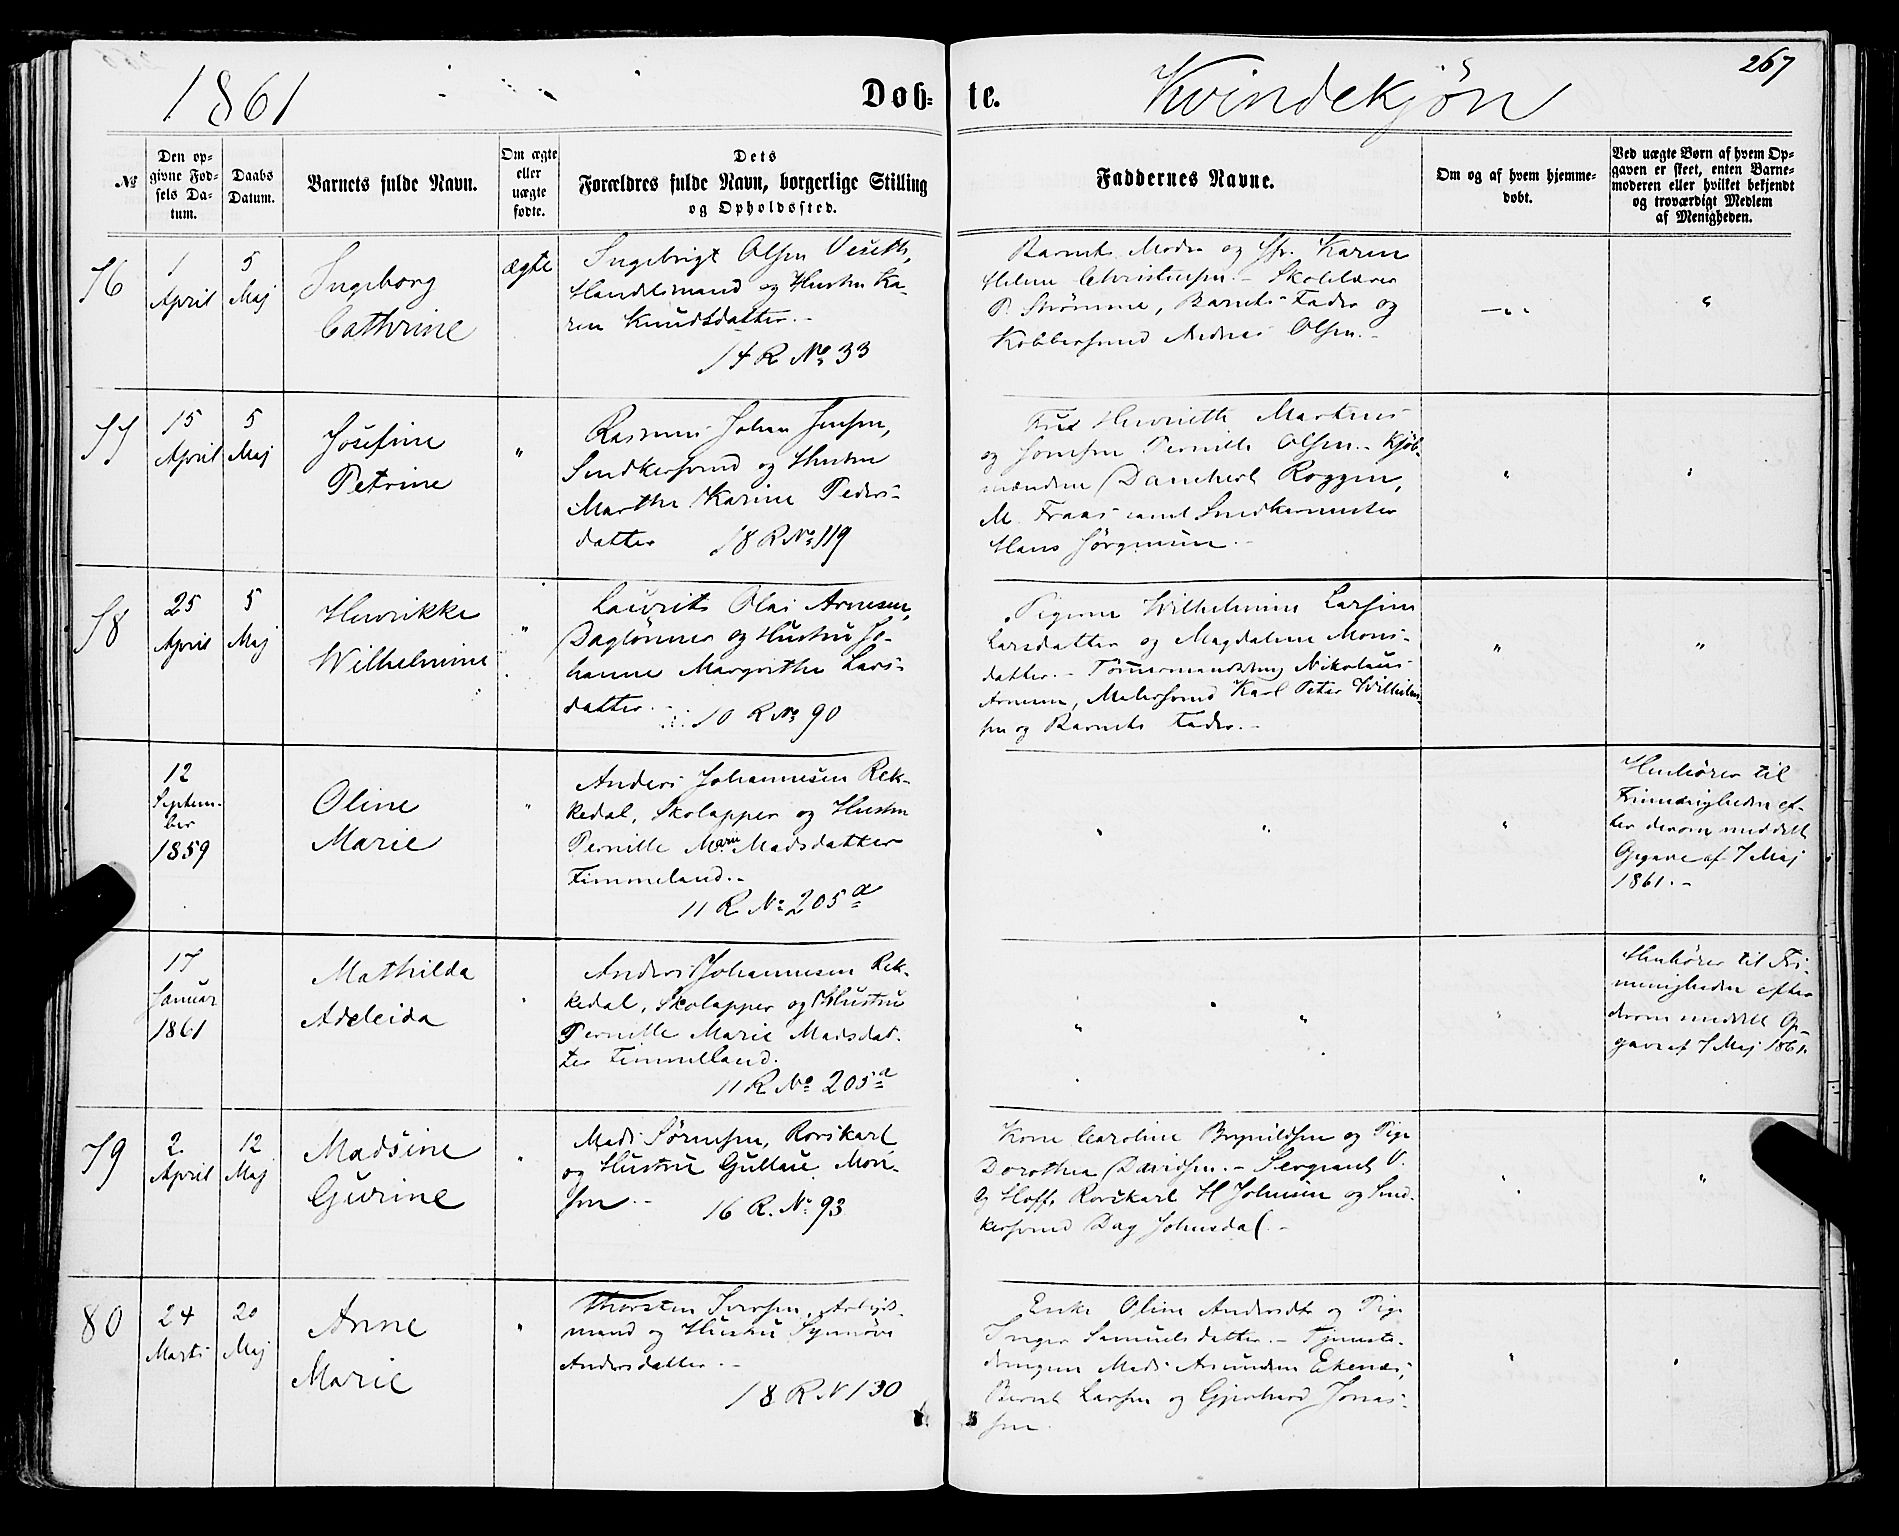 267
1861
Døb- te.
Kvindekjøn
№
Den op-
givne Fød-
sels Da-
tum.
Daabs
Datum.
Barnets fulde Navn.
Om ægte
eller
uægte
fødte.
Dets
Forældres fulde Navn, borgerlige Stilling
og Opholdssted.
Faddernes Navne.
Om og af hvem hjemme-
døbt.
Ved uægte Børn af hvem Op-
gaven er skeet, enten Barne-
moderen eller hvilket bekjendt
og troværdigt Medlem
af Menigheden.
76
1
April
5
Maj
Ingeborg
Cathrine
ægte
Ingebrigt Olsen
Handelsmand og Hustru Ka-
ren Knudsdatter.-
14 R № 33
Barnets Moder og Karen
Helene Christensen.- Skolelærer
P. Strømme, Barnets Fader og
Kobbersvend Andreas Olsen.-
77
15
April
5
Maj
Josefine
Petrine
"
Rasmus Johan Jensen,
Snedkersvend og Hustru
Marthe Karine Peders-
datter 18 R № 119
Henriette Martens
og Pernille Olsen.- Kjøb-
mændene Danckert Roggen,
M. Fraas samt Snedkermester
Hans Jørgensen.-
"
"
78
25
April
5
Maj
Henrikke
Wilhelmine
"
Laurits Olai Arnesen,
Daglønner og Hustru Jo-
hanne Margrethe Lars-
datter.-
10 R № 90
Pigerne Wilhelmine Larsine
Larsdatter og Magdalene Mons-
datter.- Nikolaus
Arnesen, Malersvend Karl Peter Wilhelm-
sen og Barnets Fader.-
"
"
12
Septem-
ber
1859
Oline
Marie
"
Anders Johannesen Rek-
kedal, Skolapper og Hustru
Pernille Marie Madsdatter
Timmeland.-
11 R № 205 a
"
"
"
Henhører til
Frimenigheden ef-
ter derom meddelt
Opgave af 7 Maj
1861.-
17
Januar
1861
Mathilda
Adeleida
"
Anders Johannesen Rek-
kedal, Skolapper og Hustru
Pernille Marie Madsdat-
ter Timmelland.
11 R № 205 a
"
"
"
Henhører til Fri-
menigheden efter
derom meddelt Op-
gave af 7 Maj 1861.
79
2
April
12
Maj
Madsine
Gurine
"
Mads Sørensen, Rorskarl
og Hustru Gullaue Mon-
sen.-
16 R. № 93
Kone Caroline Brynildsen og Pige
Dorothea Davidsen.- Sergeant
Hoff, Rorskarl H Johnsen og Sned-
kersvend Dag Johnsdal.-
"
"
80
24
Marts
20
Maj
Anne
Marie
"
Thorsten Iversen, Arbejds-
mand og Hustru Synnøve
Andersdatter.-
18 R N 130
Enke Oline Andersdtr og Pige
Inger Samuelsdatter.- Tjeneste-
drengene Mads Amundsen Ekenæs,
Bernt Larsen og Gjerhard Jonas-
sen.
"
"